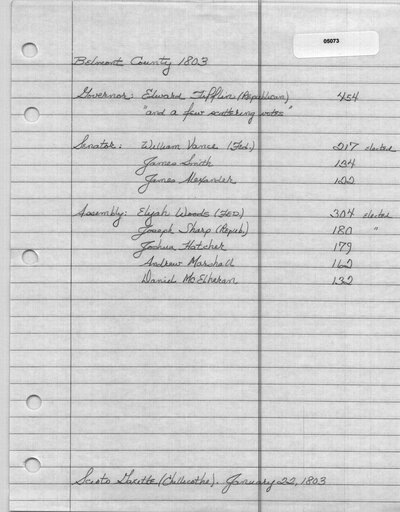 05073
Belmont County 1803
Governor: Edward Tiffin (Republican) 454
"and a few scattering votes"
Senator: William Vance (Fed.) 217 elected
James Smith 134
James Alexander 122
Assembly: Elijah Woods (FED) 304 elected
Joseph Sharp (Repub.) 180 "
Joshua Hatcher 179
Andrew Marshall 162
Daniel McElheran 132
Scioto Gazette (Chillicothe). January 22, 1803